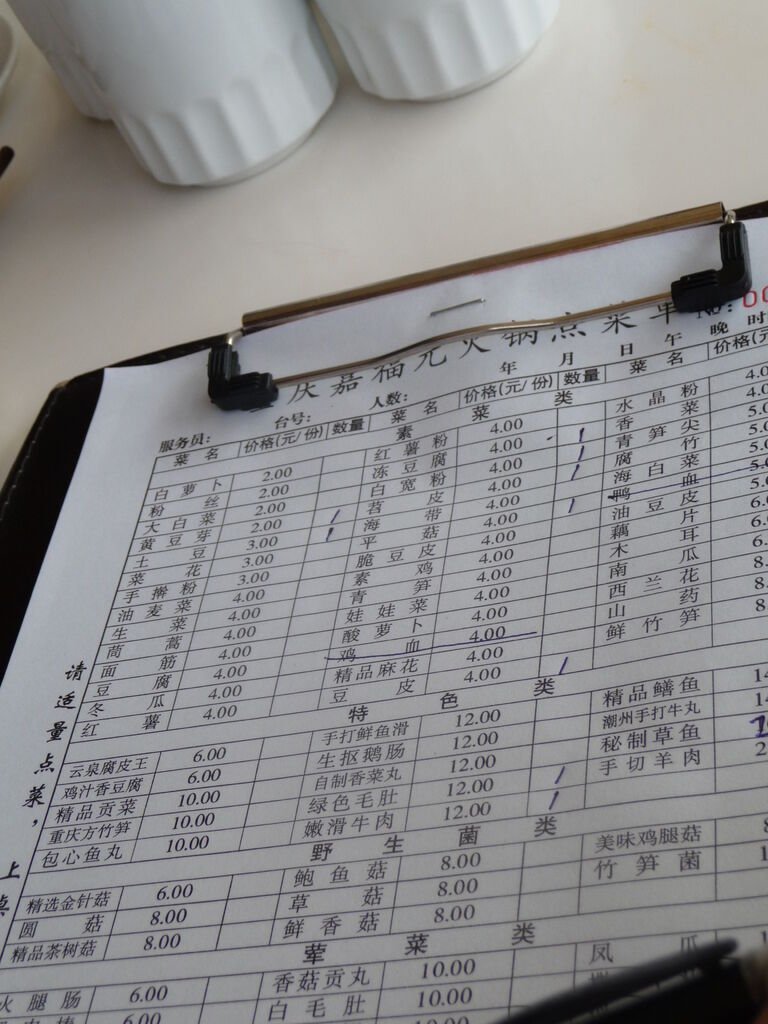 庆嘉福元火锅点菜单 No: 00
台号: 人数: 年 月 日 午 晚 时
服务员:
菜名 价格(元/份) 数量 菜名 价格(元/份) 数量 菜名 价格(元
素菜类
白萝卜 2.00 红薯粉 4.00 水晶粉 4.0
粉丝 2.00 冻豆腐 4.00 香菜 4.0
大白菜 2.00 白宽粉 4.00 青笋尖 5.0
黄豆芽 2.00 苕皮 4.00 腐竹 5.0
土豆 3.00 海带 4.00 海白菜 5.0
菜花 3.00 平菇 4.00 鸭血 5.0
手擀粉 3.00 脆豆皮 4.00 油豆皮 5.0
油麦菜 4.00 素鸡 4.00 藕片 6.0
生菜 4.00 青笋 4.00 木耳 6.0
茼蒿 4.00 娃娃菜 4.00 南瓜 6.
面筋 4.00 酸萝卜 4.00 西兰花 8.
豆腐 4.00 鸡血 4.00 山药 8.
冬瓜 4.00 精品麻花 4.00 鲜竹笋 8.
红薯 4.00 豆皮 4.00
特色类
云泉腐皮王 6.00 手打鲜鱼滑 12.00 精品鳝鱼 14
鸡汁香豆腐 6.00 生抠鹅肠 12.00 潮州手打牛丸 14
精品贡菜 10.00 自制香菜丸 12.00 秘制草鱼
重庆方竹笋 10.00 绿色毛肚 12.00 手切羊肉 2
包心鱼丸 10.00 嫩滑牛肉 12.00
野生菌类
精选金针菇 6.00 鲍鱼菇 8.00 美味鸡腿菇 8
圆菇 8.00 草菇 8.00 竹笋菌 1
精品茶树菇 8.00 鲜香菇 8.00
荤菜类
火腿肠 6.00 香菇贡丸 10.00 凤爪
6.00 白毛肚 10.00
10.00
请适量点菜，上